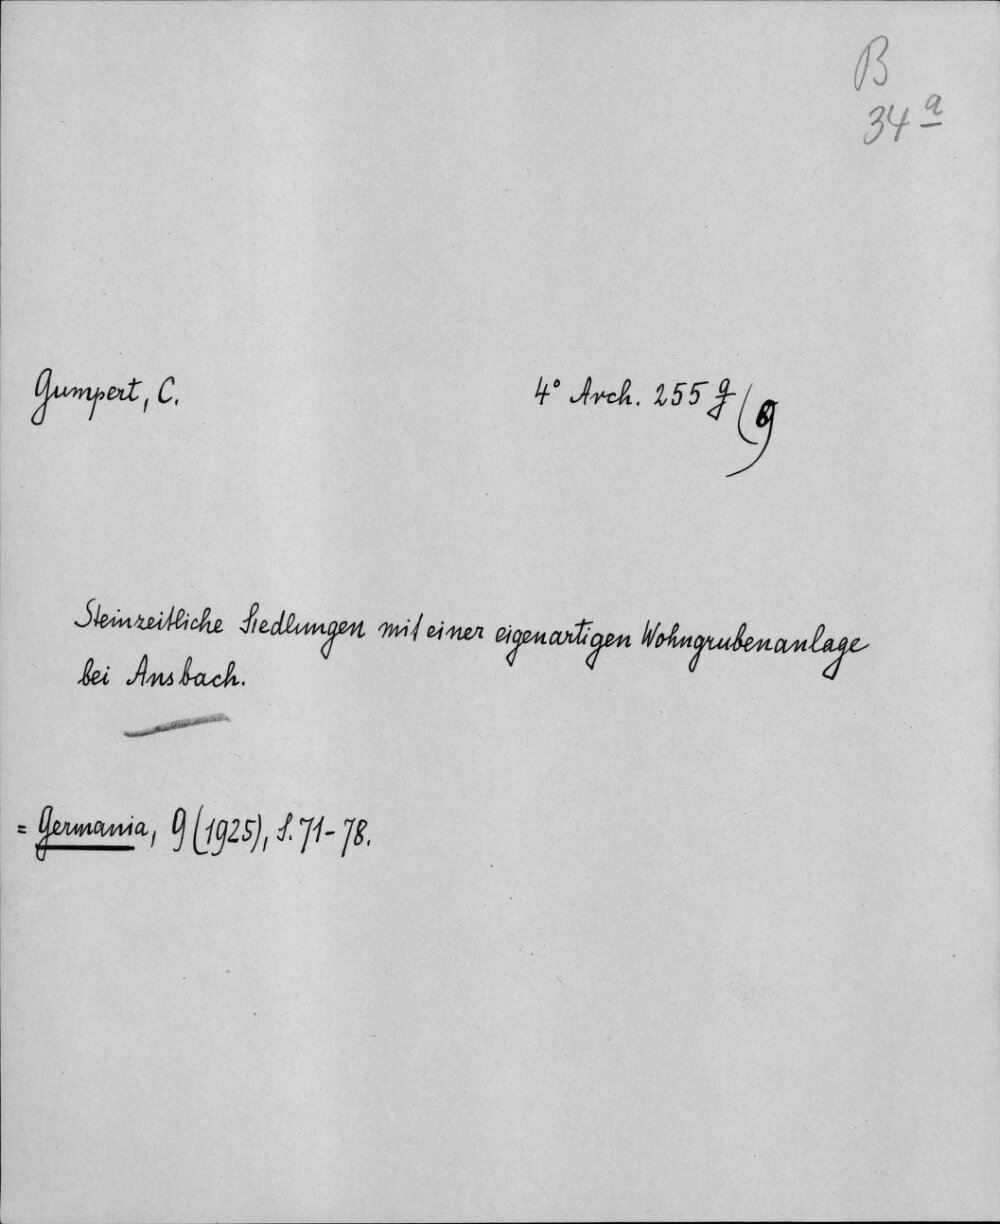 B
34 a
Gumpert, C.
4° Arch. 255 g (9
Steinzeitliche Siedlungen mit einer eigenartigen Wohngrubenanlage
bei Ansbach.
= Germania, 9 (1925), S. 71-78.